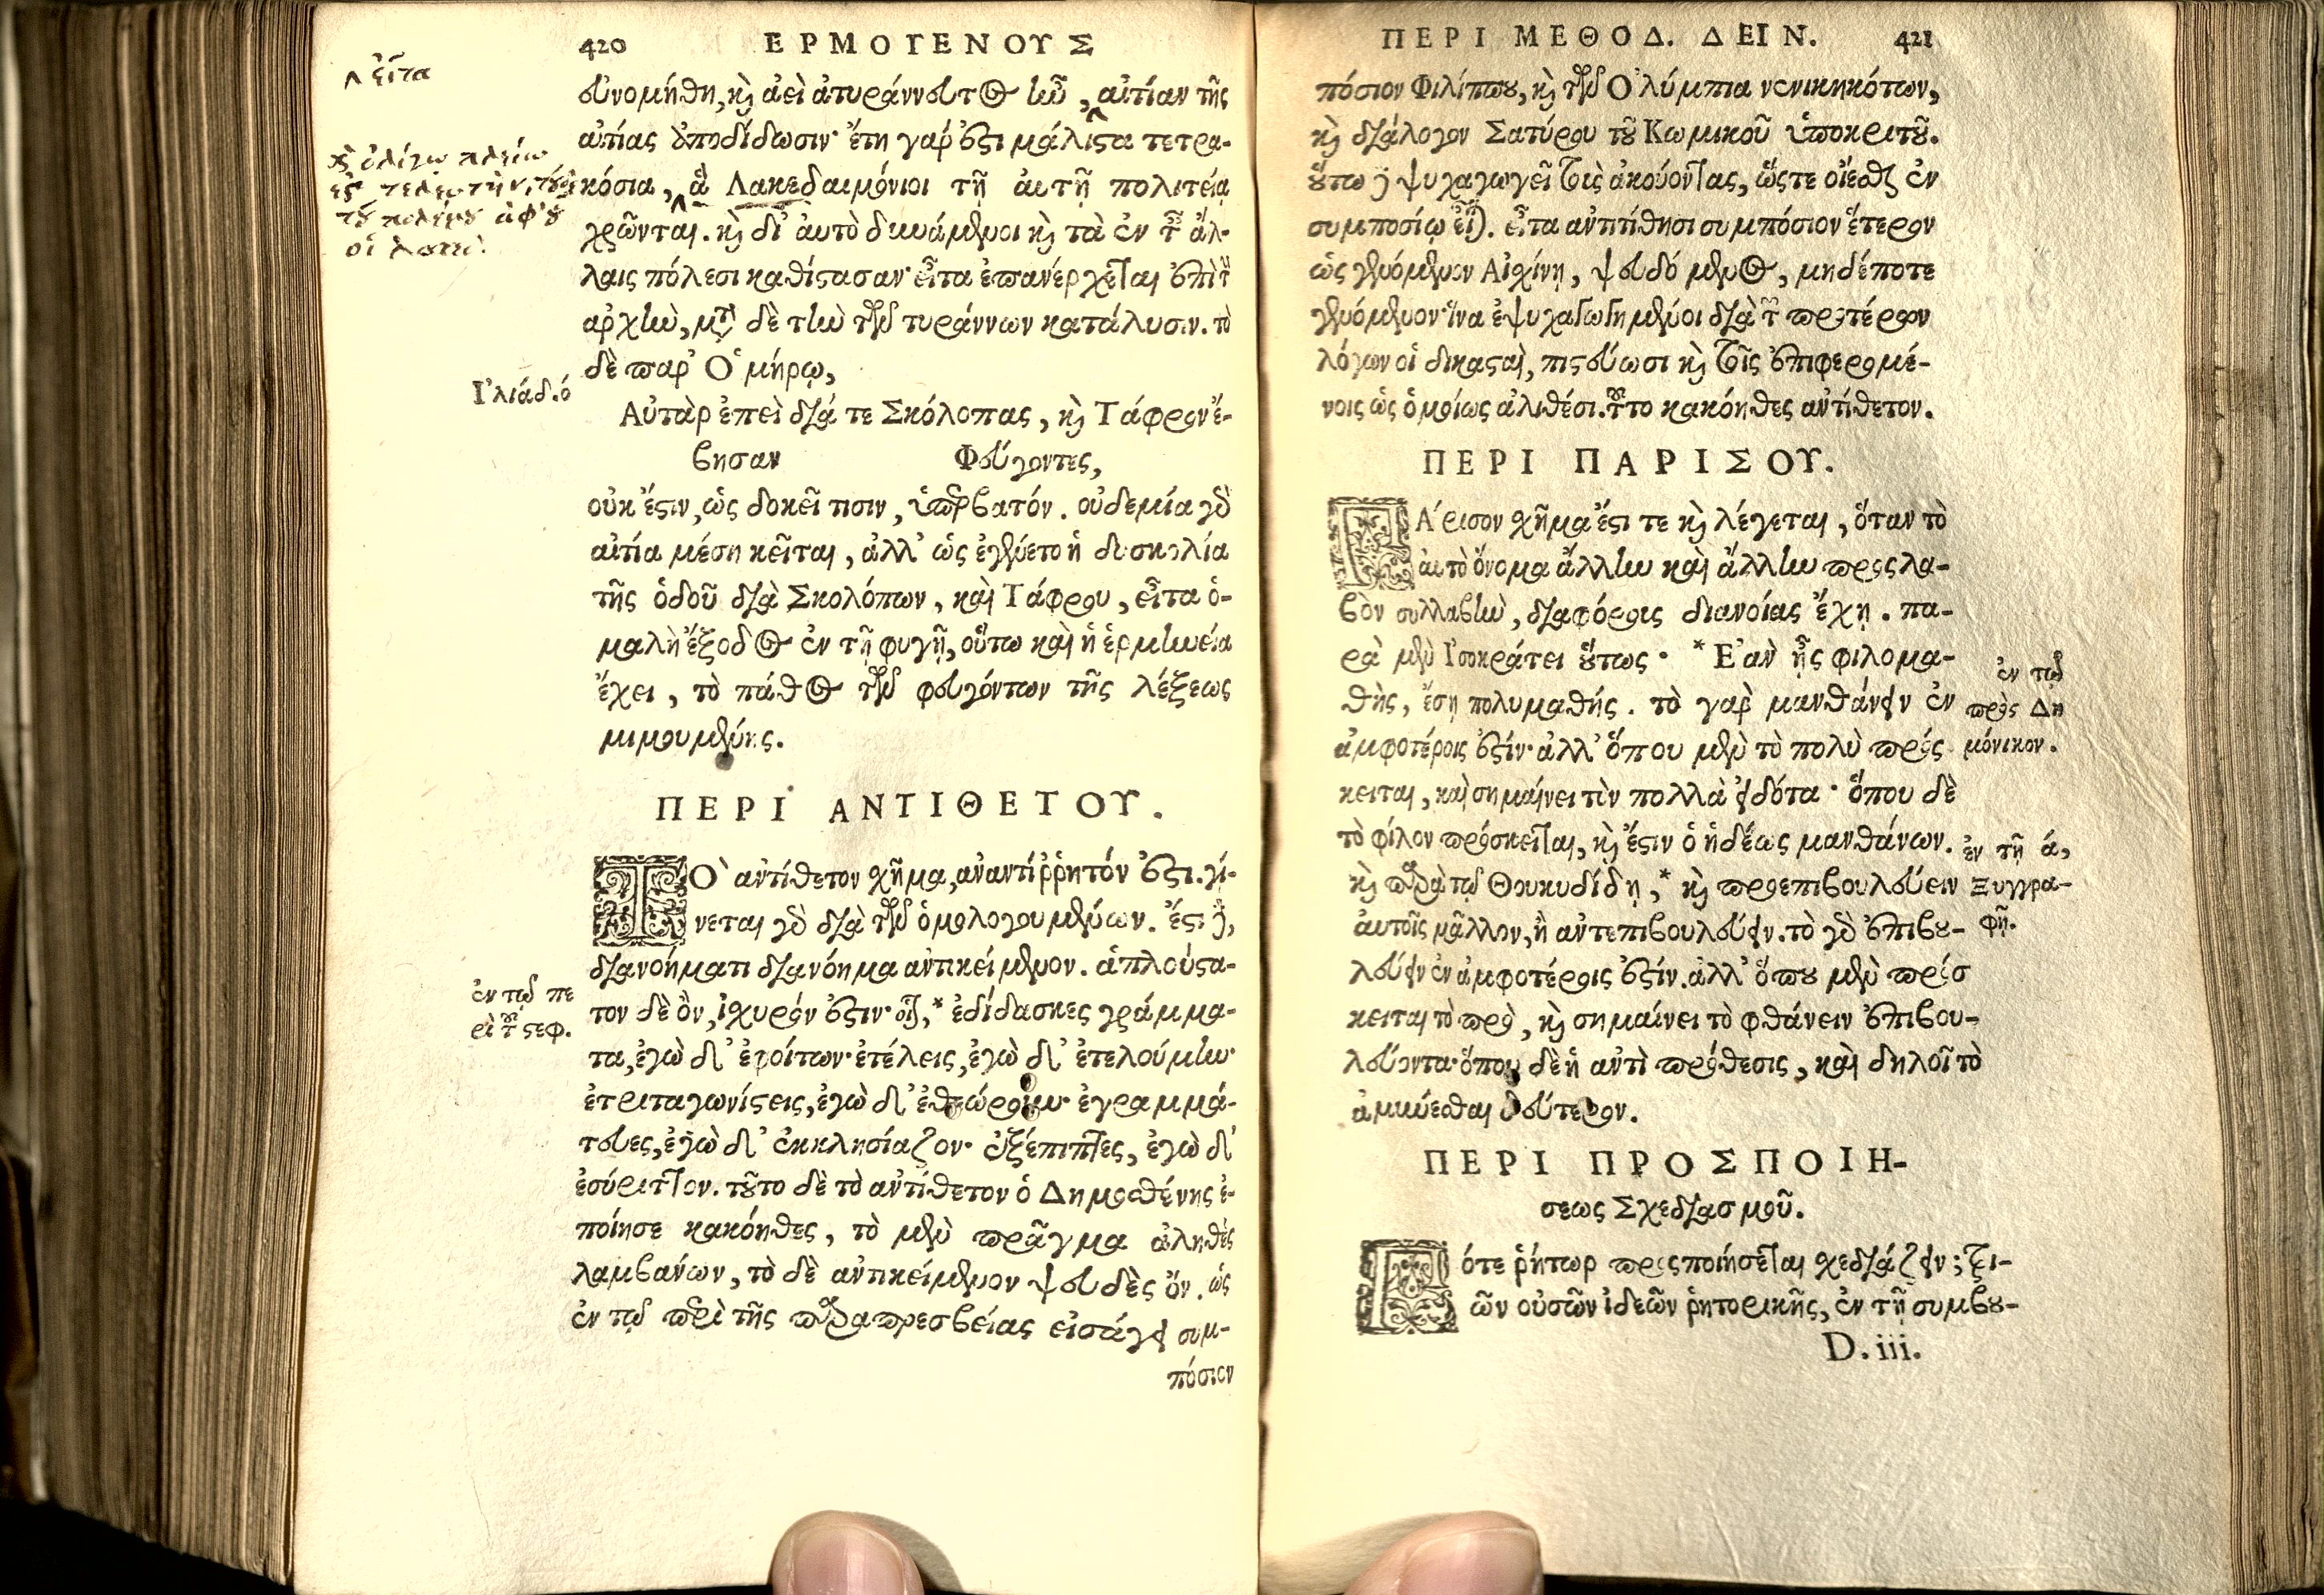 420 ΕΡΜΟΓΕΝΟΥΣ
εὐνομήθη, καὶ ἀεὶ ἀτυράννευτος ἦν, αἰτίαν τῆς
αἰτίας ἀποδίδωσιν· ἔτη γάρ ἐστι μάλιστα τετρα-
κόσια, ἃ Λακεδαιμόνιοι τῇ αὐτῇ πολιτείᾳ
χρῶνται. καὶ δι' αὐτὸ δυνάμενοι καὶ τὰ ἐν ταῖς ἄλ-
λαις πόλεσι καθίστασαν· εἶτα ἐπανέρχεται ἐπὶ τὴν
ἀρχὴν, μετὰ δὲ τὴν τῶν τυράννων κατάλυσιν. τὸ
δὲ παρ' Ὁμήρῳ,
Αὐτὰρ ἐπεὶ διά τε Σκόλοπας, καὶ Τάφρον ἔ-
βησαν Φεύγοντες,
οὐκ ἔστιν, ὡς δοκεῖ τισιν, ὑπερβατόν. οὐδεμία γὸ
αἰτία μέση κεῖται, ἀλλ' ὡς ἐγένετο ἡ δυσκολία
τῆς ὁδοῦ διὰ Σκολόπων, καὶ Τάφρου, εἶτα ὁ-
μαλὴ ἔξοδος ἐν τῇ φυγῇ, οὕτω καὶ ἡ ἑρμηνεία
ἔχει, τὸ πάθος τῶν φευγόντων τῆς λέξεως
μιμουμένης.
Ἰλιάδ. ό
∧ εἶτα
καὶ ὀλίγῳ πλείω
ἐς τελευτὴν τοῦδε
τοῦ πολέμου ἀφ' οὗ
οἱ λακε.
ΠΕΡΙ ΑΝΤΙΘΕΤΟΥ.
ΤῸ ἀντίθετον σχῆμα, ἀναντίῤῥητόν ἐστι. γί-
νεται γὸ διὰ τῶν ὁμολογουμένων. ἔστι δὲ,
διανοήματι διανόημα ἀντικείμενον. ἁπλούστα-
τον δὲ ὂν, ἰσχυρόν ἐστιν· οἷον, * ἐδίδασκες γράμμα-
τα, ἐγὼ δ' ἐφοίτων· ἐτέλεις, ἐγὼ δ' ἐτελούμην·
ἐτριταγωνίστεις, ἐγὼ δ' ἐθεώρουν· ἐγραμμά-
τευες, ἐγὼ δ' ἐκκλησίαζον· ἐξέπιπτες, ἐγὼ δ'
ἐσύριττον. τοῦτο δὲ τὸ ἀντίθετον ὁ Δημοσθένης ἐ-
ποίησε κακόηθες, τὸ μὲν πρᾶγμα ἀληθὲς
λαμβάνων, τὸ δὲ ἀντικείμενον ψευδὲς ὄν. ὡς
ἐν τῷ περὶ τῆς παραπρεσβείας εἰσάγει συμ-
πόσιον
ἐν τῷ πε
ρὶ τοῦ στεφ.
ΠΕΡΙ ΜΕΘΟΔ. ΔΕΙΝ. 421
πόσιον Φιλίππου, καὶ τῶν Ὀλύμπια νενικηκότων,
καὶ διάλογον Σατύρου τοῦ Κωμικοῦ ὑποκριτοῦ.
οὕτω δὲ ψυχαγωγεῖ τοὺς ἀκούοντας, ὥστε οἴεσθαι ἐν
συμποσίῳ εἶναι. εἶτα ἀντιτίθησι συμπόσιον ἕτερον
ὡς γενόμενον Αἰσχίνῃ, ψευδόμενος, μηδέποτε
γενόμενον· ἵνα ἐψυχαγωγημένοι διὰ τῶν προτέρων
λόγων οἱ δικασταὶ, πιστεύωσι καὶ τοῖς ἐπιφερομέ-
νοις ὡς ὁμοίως ἀληθέσι. τοῦτο κακόηθες ἀντίθετον.
ΠΕΡΙ ΠΑΡΙΣΟΥ.
ΠΆρισον σχῆμα ἔστι τε καὶ λέγεται, ὅταν τὸ
αὐτὸ ὄνομα ἄλλην καὶ ἄλλην προσλα-
βὸν συλλαβὴν, διαφόροις διανοίας ἔχῃ. πα-
ρὰ μὲν Ἰσοκράτει οὕτως· * Ἐὰν ᾖς φιλομα-
θὴς, ἔσῃ πολυμαθής. τὸ γὰρ μανθάνειν ἐν
ἀμφοτέροις ἐστίν· ἀλλ' ὅπου μὲν τὸ πολὺ πρόσ
κειται, καὶ σημαίνει τὸν πολλὰ εἰδότα· ὅπου δὲ
τὸ φίλον πρόσκειται, καὶ ἔστιν ὁ ἡδέως μανθάνων.
καὶ παρὰ τῷ Θουκυδίδῃ, * καὶ προεπιβουλεύειν
αὐτοῖς μᾶλλον, ἢ ἀντεπιβουλεύειν. τὸ γὸ ἐπιβου-
λεύειν ἐν ἀμφοτέροις ἐστίν. ἀλλ' ὅπου μὲν πρόσ
κειται τὸ πρὸ, καὶ σημαίνει τὸ φθάνειν ἐπιβου-
λεύοντα· ὅπου δὲ ἡ ἀντὶ πρόθεσις, καὶ δηλοῖ τὸ
ἀμύνεσθαι δεύτερον.
ἐν τῷ
πρὸς Δη
μόνικον.
ἐν τῇ ά,
Ξυγγρα-
φῇ.
ΠΕΡΙ ΠΡΟΣΠΟΙΗ-
σεως Σχεδιασμοῦ.
Πότε ῥήτωρ προσποιήσεται σχεδιάζειν; τρι-
ῶν οὐσῶν ἰδεῶν ῥητορικῆς, ἐν τῇ συμβου-
D.iii.